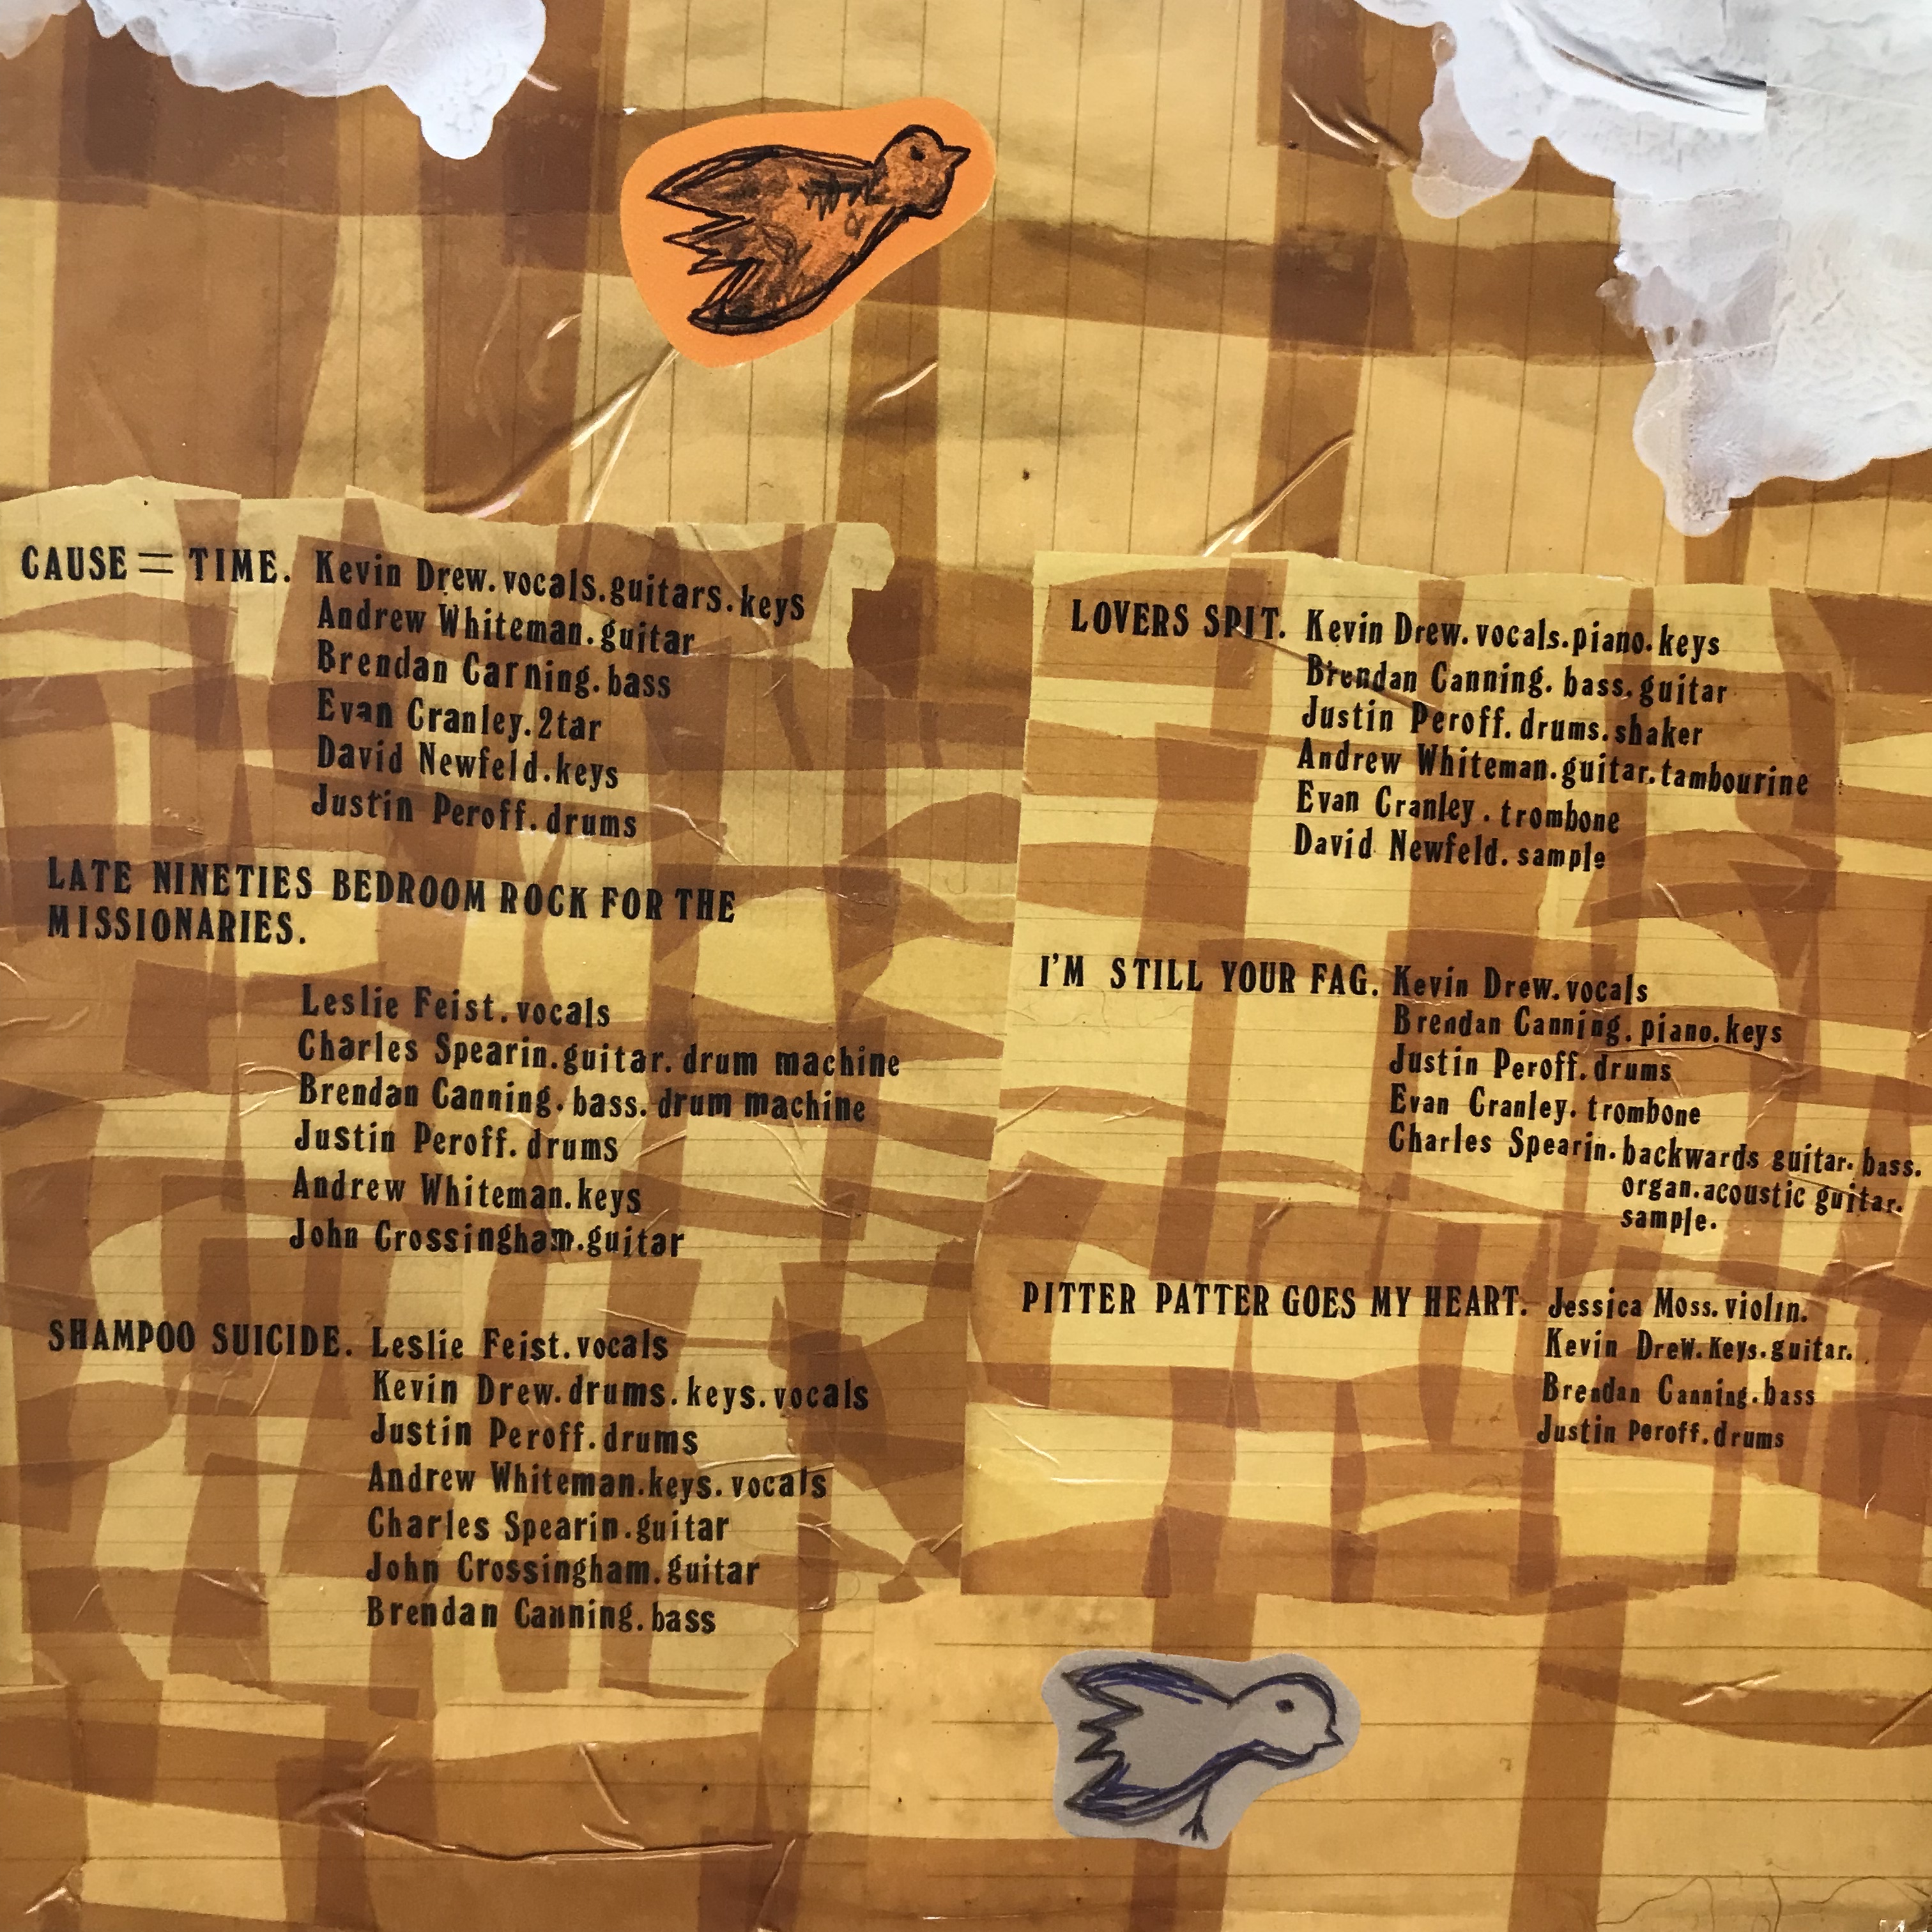 CAUSE = TIME. Kevin Drew.vocals.guitars.keys
Andrew Whiteman.guitar
Brendan Carning.bass
Evan Cranley.2tar
David Newfeld.keys
Justin Peroff.drums
LATE NINETIES BEDROOM ROCK FOR THE
MISSIONARIES.
Leslie Feist.vocals
Charles Spearin.guitar. drum machine
Brendan Canning.bass. drum machine
Justin Peroff. drums
Andrew Whiteman.keys
John Crossingham.guitar
SHAMPOO SUICIDE. Leslie Feist.vocals
Kevin Drew.drums.keys.vocals
Justin Peroff.drums
Andrew Whiteman.keys.vocals
Charles Spearin.guitar
John Crossingham.guitar
Brendan Canning.bass
LOVERS SPIT. Kevin Drew.vocals.piano.keys
Brendan Canning. bass.guitar
Justin Peroff. drums.shaker
Andrew Whiteman.guitar.tambourine
Evan Cranley. trombone
David Newfeld. sample
I'M STILL YOUR FAG. Kevin Drew.vocals
Brendan Canning. piano.keys
Justin Peroff. drums
Evan Cranley. trombone
Charles Spearin. backwards guitar. bass.
organ.acoustic guitar.
sample.
PITTER PATTER GOES MY HEART. Jessica Moss.violin.
Kevin Drew.Keys.guitar.
Brendan Canning.bass
Justin Peroff.drums